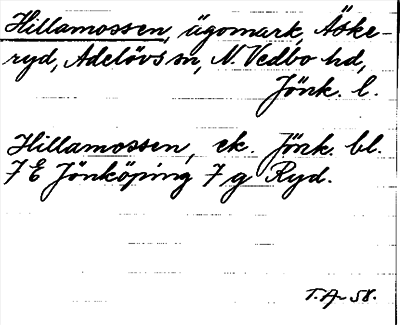 Hillamossen, ägomark, Äske-
ryd, Adelövs sn, N. Vedbo hd,
Jönk. l.
Hillamossen, ek. Jönk. bl.
7 E Jönköping 7 g Ryd.
T. A-58.